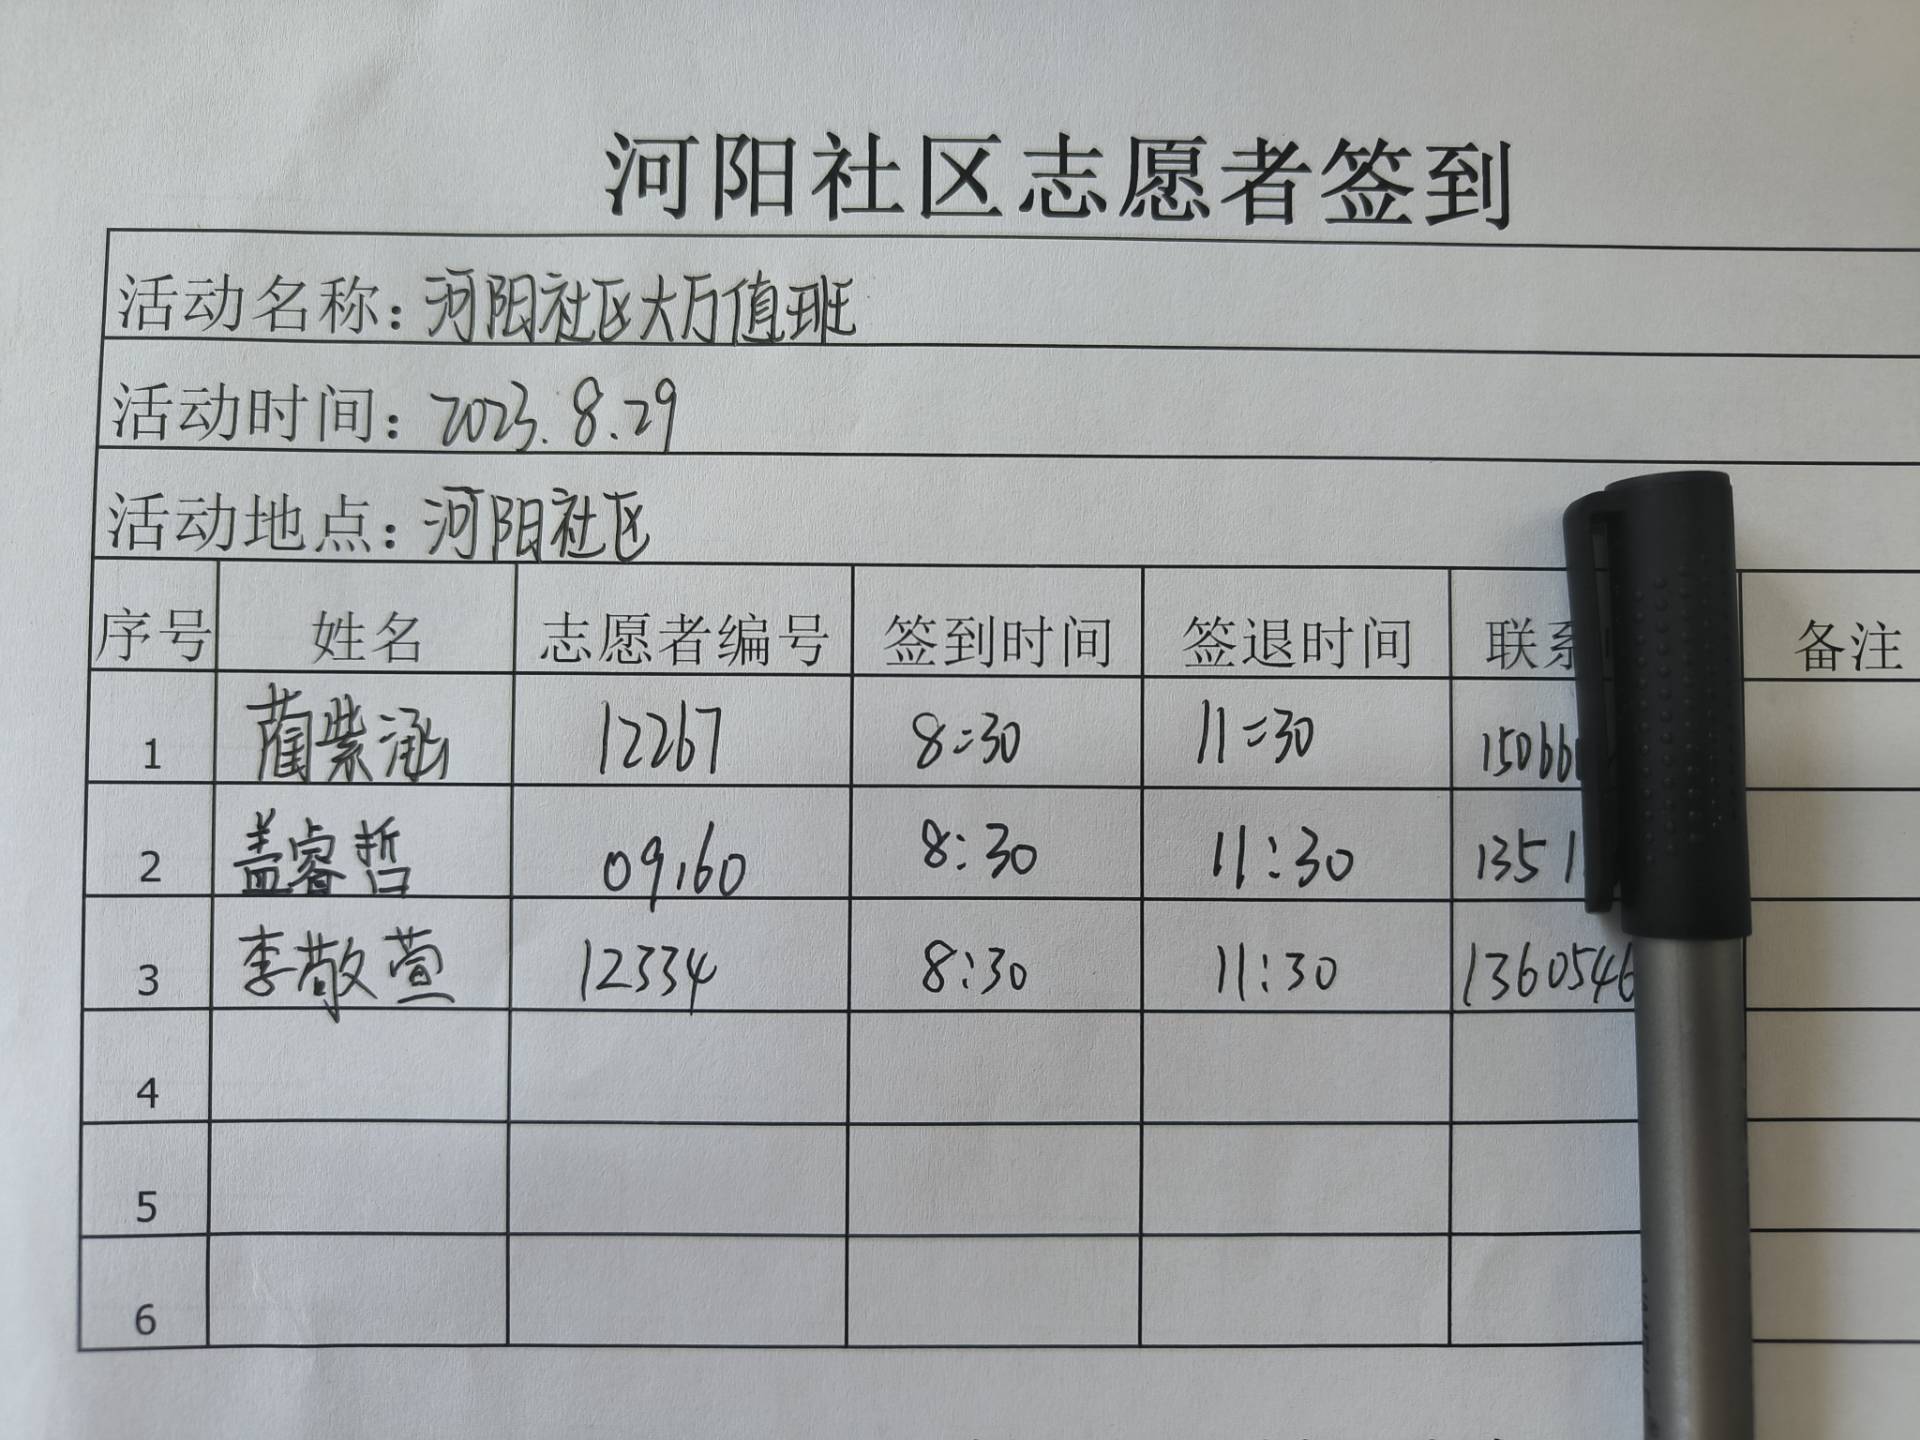 河阳社区志愿者签到
活动名称：河阳社区大万值班
活动时间：2023.8.29
活动地点：河阳社区
序号 姓名 志愿者编号 签到时间 签退时间 联系 备注
1 蔺紫涵 12267 8:30 11:30 15066
2 盖睿哲 09160 8:30 11:30 1351
3 李敬萱 12334 8:30 11:30 1360546
4
5
6